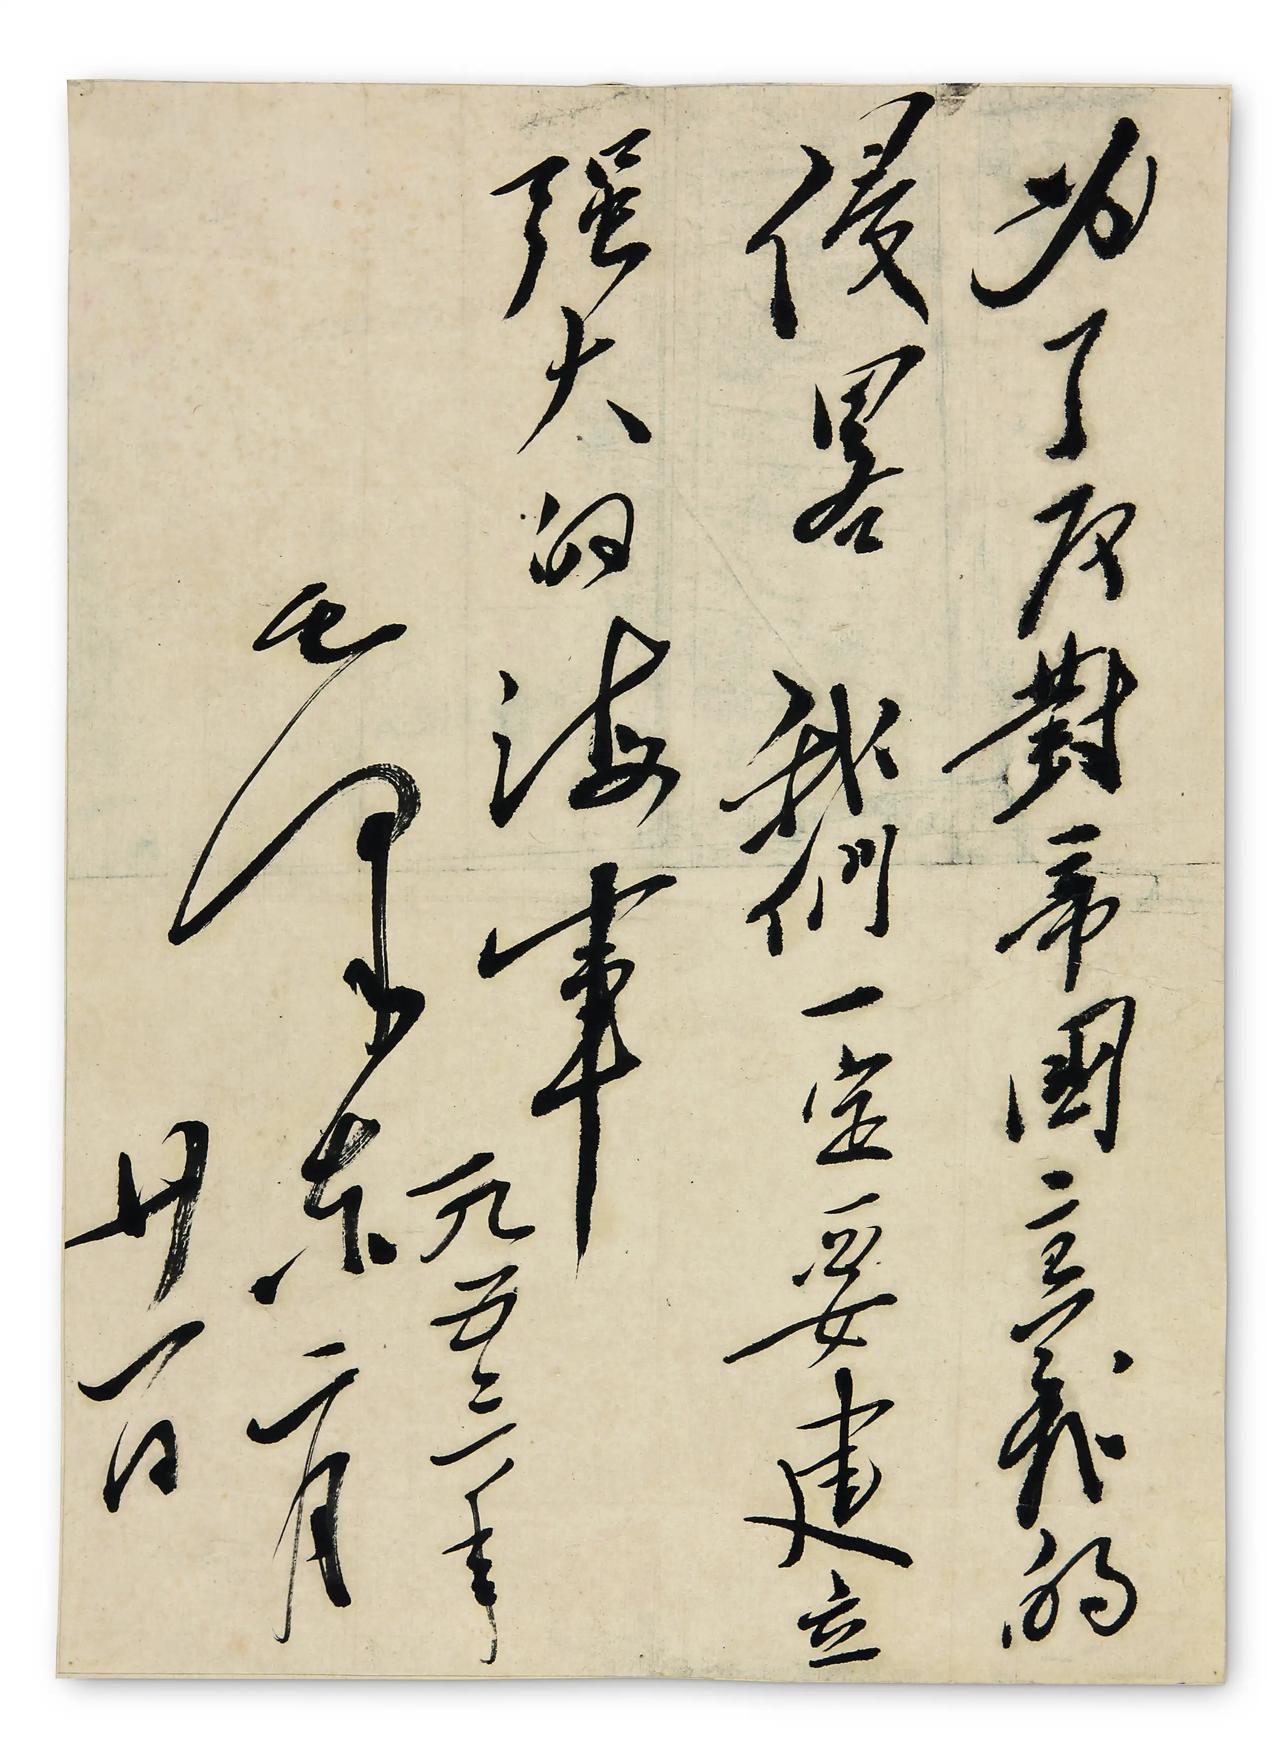 为了反對帝國主義的
侵畧我們一定要建立
强大的海軍
一九五三年
毛泽东二月
廿一日